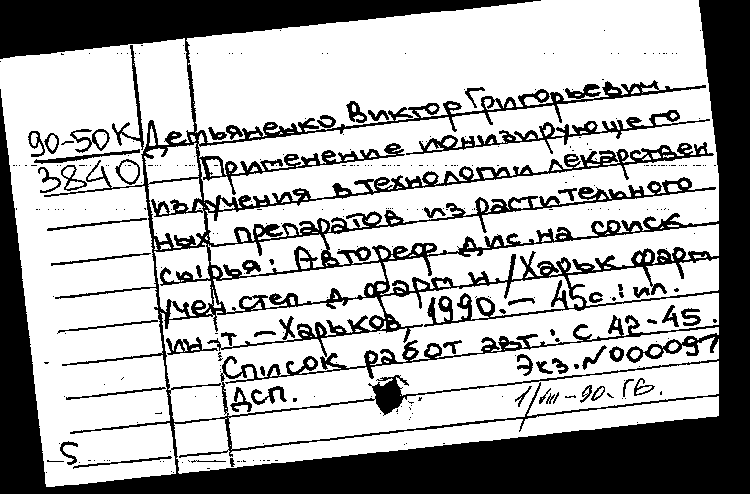 90-50К Демьяненко, Виктор Григорьевич.
3840 Применение ионизирующего
излучения в технологии лекарствен
ных препаратов из растительного
сырья: Автореф. дис. на соиск.
учен. степ. д. фарм. н. / Харьк фарм
ин-т. - Харьков, 1990. - 45с.: ил.
Список работ авт.: с. 42-45.
Экз. N000097
ДСП.
1/VIII-90. ГБ.
S